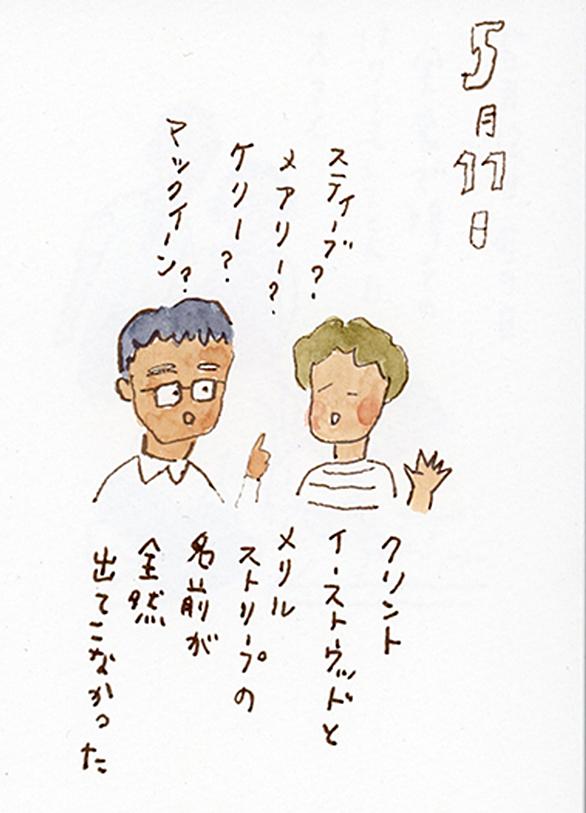 5月11日
スティーブ?
メアリー?
ケリー?
マックイーン?
クリント
イーストウッドと
メリル
ストリープの
名前が
全然
出てこなかった